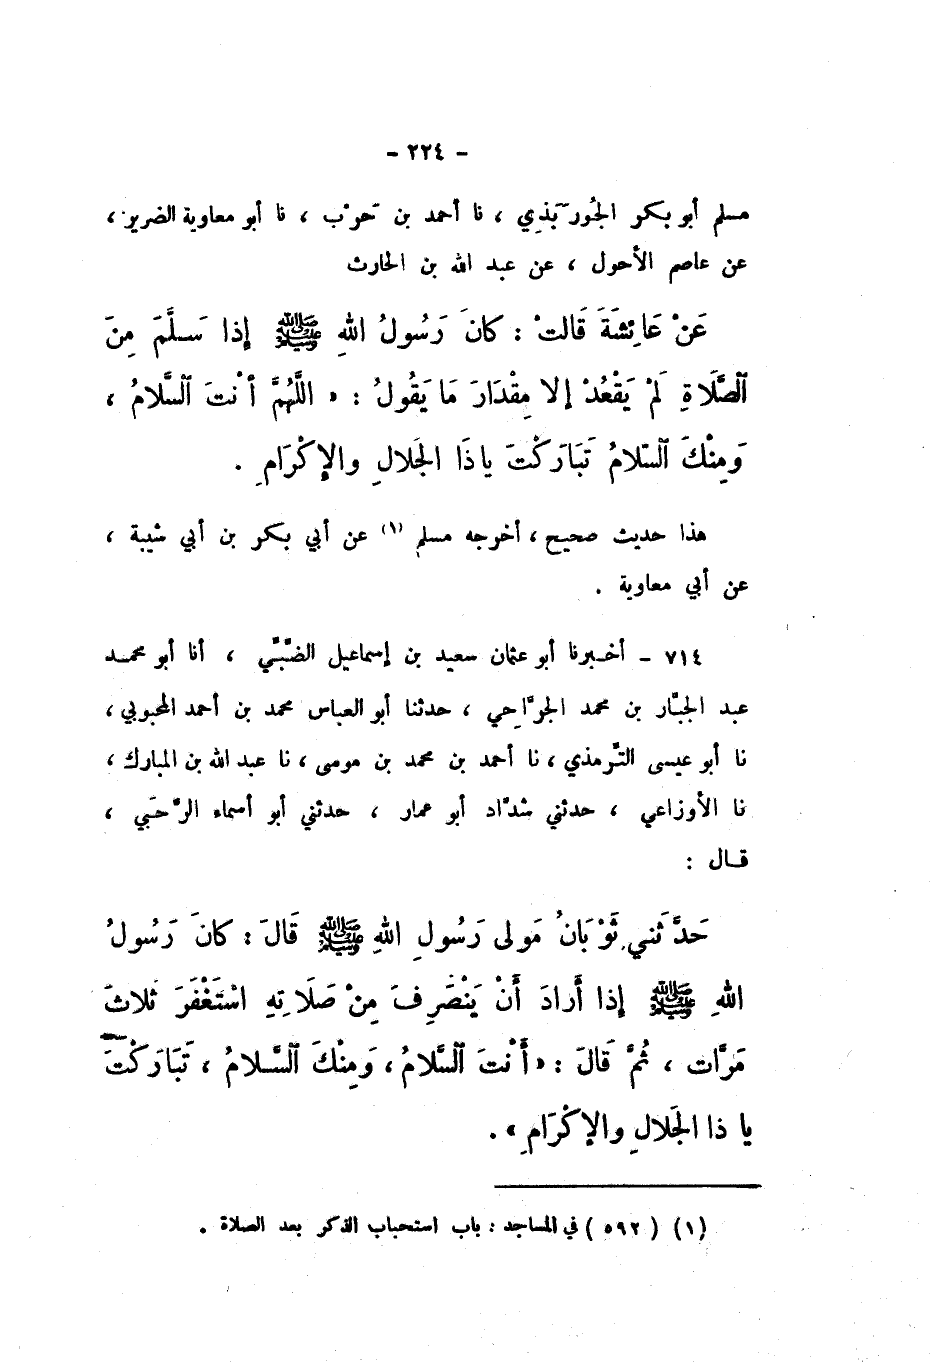 - ٢٢٤ -
مسلم أبو بكر الجُورَبَذي ، نا أحمد بن حَرْب ، نا أبو معاوية الضرير ،
عن عاصم الأحول ، عن عبد الله بن الحارث
عَنْ عَائِشَةَ قَالَتْ : كَانَ رَسُولُ اللهِ ﷺ إِذا سَلَّمَ مِنَ
ٱلصَّلَاةِ لَمْ يَقْعُدْ إلا مِقْدَارَ مَا يَقُولُ : « اللَّهُمَّ أَنْتَ ٱلسَّلامُ ،
وَمِنْكَ ٱلسّلامُ تَبَارَكْتَ ياذَا الجَلالِ والإِكْرَامِ .
هذا حديث صحيح ، أخرجه مسلم (١) عن أبي بكر بن أبي شيبة ،
عن أبي معاوية .
٧١٤ - أخبرنا أبو عثمان سعيد بن إسماعيل الضَّبِّي ، أنا أبو محمد
عبد الجبّار بن محمد الجرَّاحي ، حدثنا أبو العباس محمد بن أحمد المحبوبي ،
نا أبو عيسى التِّرمذي ، نا أحمد بن محمد بن موسى ، نا عبد الله بن المبارك ،
نا الأوزاعي ، حدثني شدَّاد أبو عمار ، حدثني أبو أسماء الرَّحَبي ،
قال :
حَدَّثَني ثَوْبَانُ مَولى رَسُولِ اللهِ ﷺ قَالَ : كَانَ رَسُولُ
اللهِ ﷺ إِذا أَرادَ أَنْ يَنْصَرِفَ مِنْ صَلَاتِهِ اسْتَغْفَرَ ثَلاثَ
مَرَّات ، ثُمَّ قَالَ : « أَنْتَ ٱلسَّلامُ ، وَمِنْكَ ٱلسَّلامُ ، تَبَارَكْتَ
يا ذا الجَلالِ والإِكْرَامِ » .
(١) ( ٥٩٢ ) في المساجد : باب استحباب الذكر بعد الصلاة .